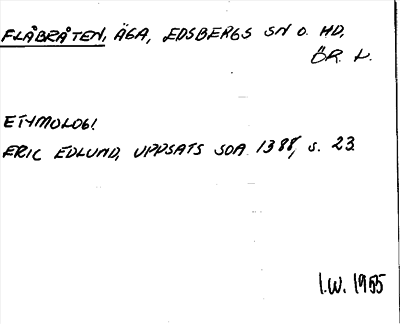 FLÅBRÅTEN, ÄGA, EDSBERGS SN O. HD,
ÖR. L.
ETYMOLOGI
ERIC EDLUND, UPPSATS SOA 1388, s. 23
I.W. 1955